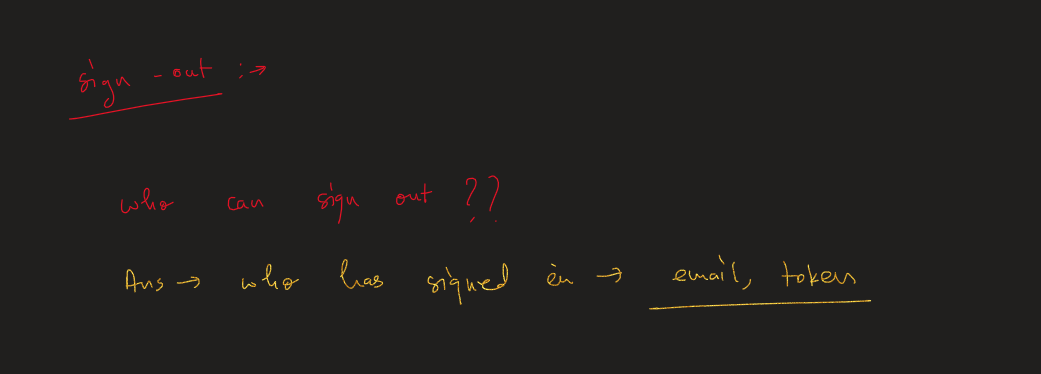 sign - out :→
who can sign out ??
Ans → who has signed in → email, token